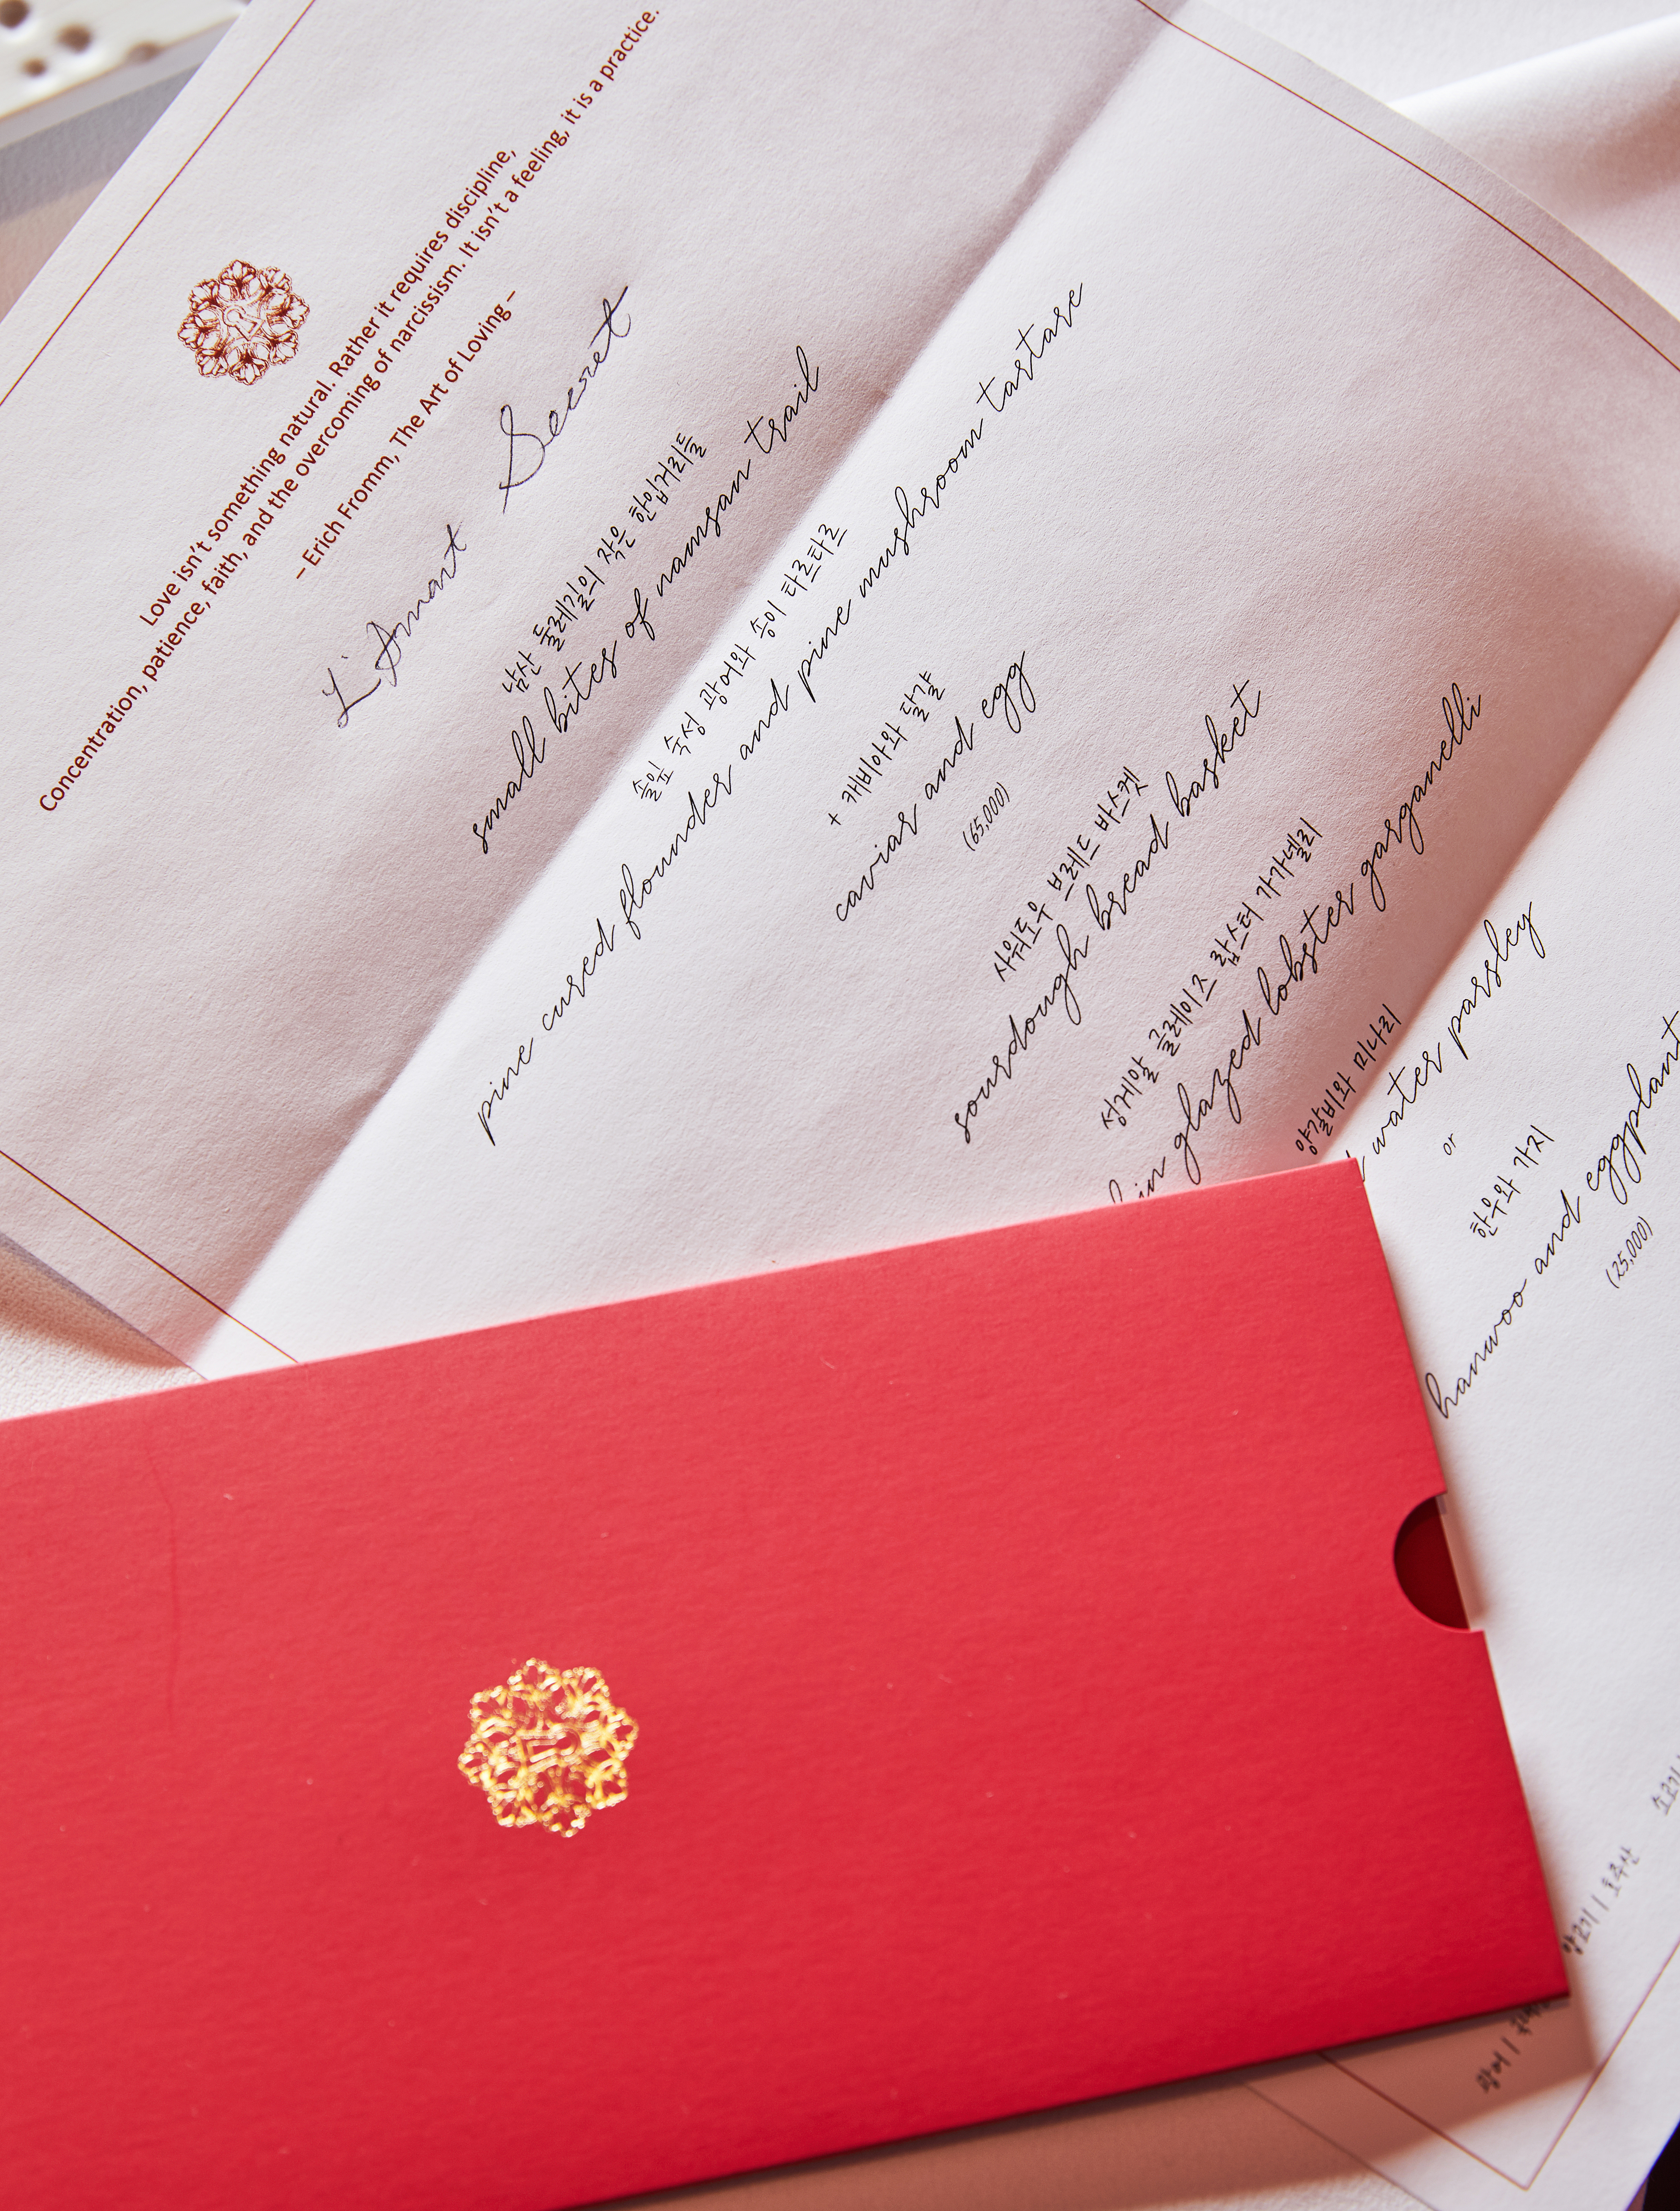 Love isn't something natural. Rather it requires discipline,
Concentration, patience, faith, and the overcoming of narcissism. It isn't a feeling, it is a practice.
– Erich Fromm, The Art of Loving –
L'Amant Secret
남산 둘레길의 작은 한입거리들
small bites of namsan trail
솔잎 숙성 광어와 송이 타르타르
pine cured flounder and pine mushroom tartare
+ 캐비아와 달걀
caviar and egg
(65,000)
사워도우 브레드 바스켓
sourdough bread basket
성게알 글레이즈 랍스터 가가넬리
glazed lobster garganelli
양갈비와 미나리
water parsley
or
한우와 가지
hanwoo and eggplant
(25,000)